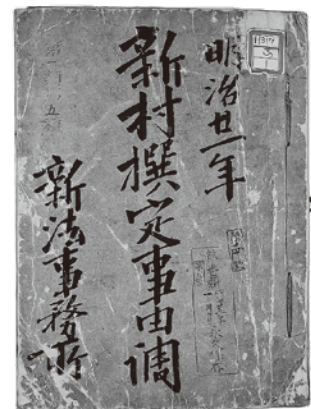 明治廿一年
新村撰定事由調
新法事務所